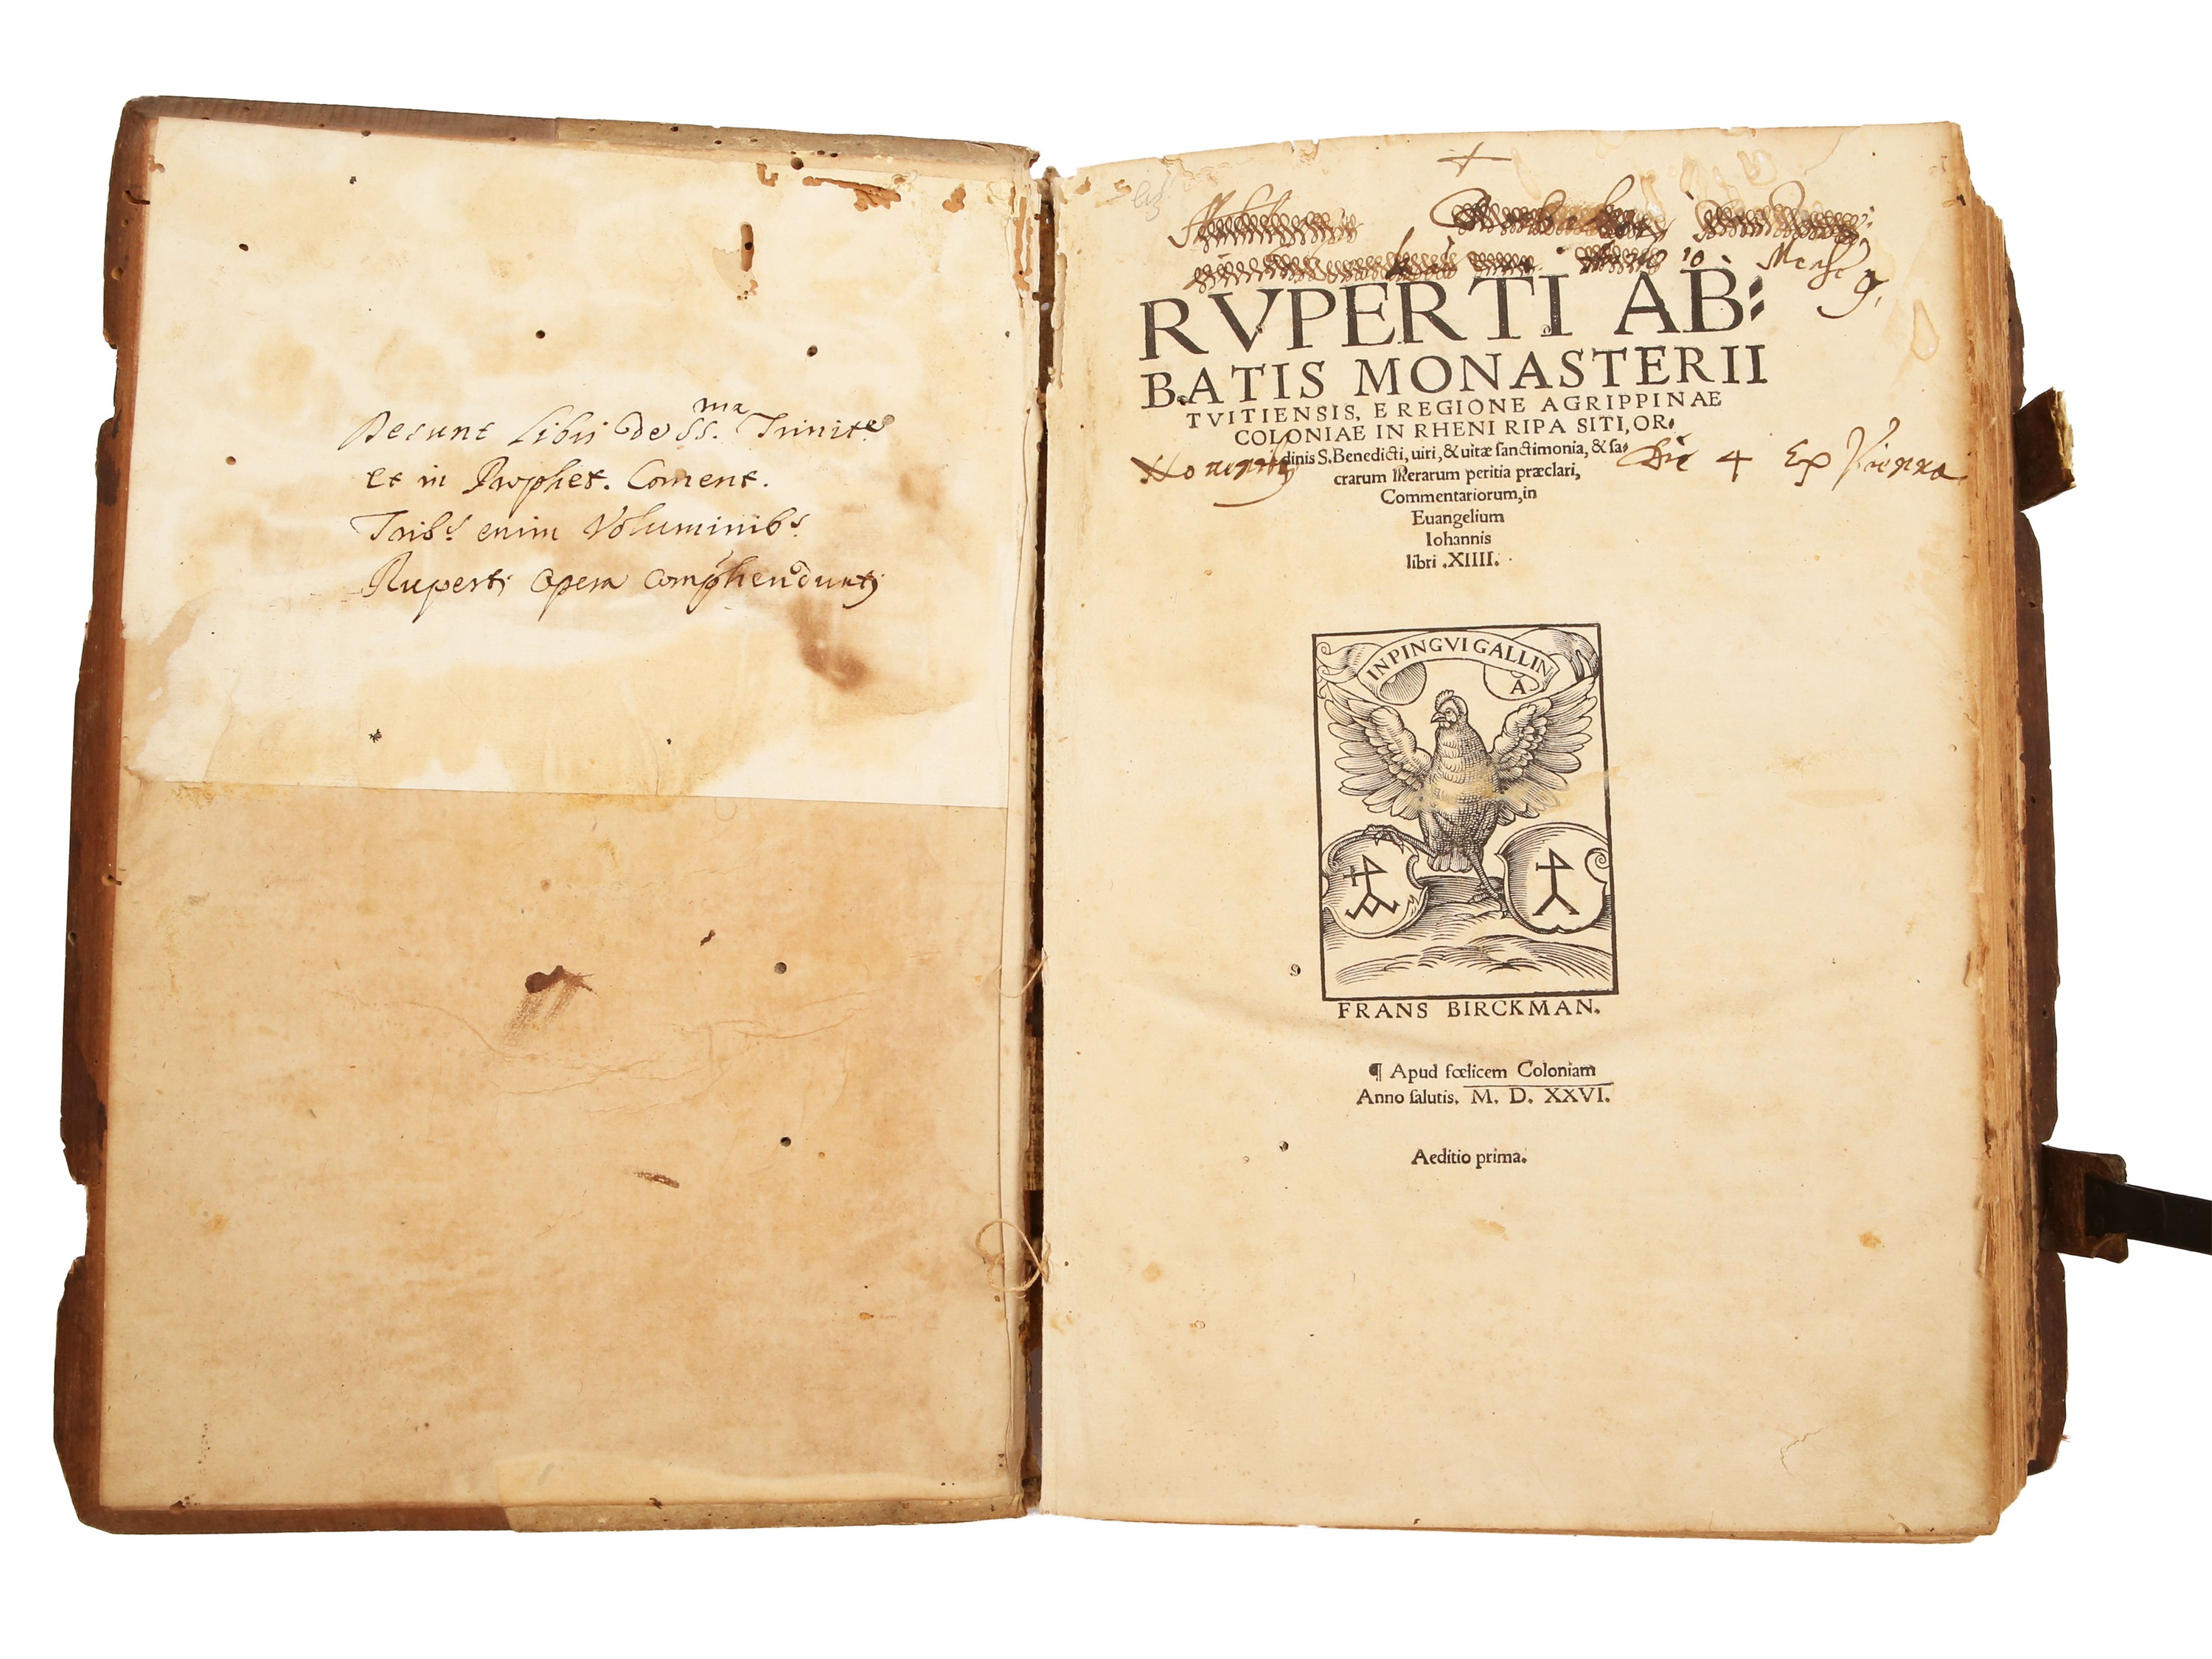 Desunt Libri de SS.ma Trinitẽ
et in Prophet. Coment.
Tribꝰ enim Voluminibꝰ
Ruperti Opera comp̃hendunt̃
10 Mense 9.
RVPERTI AB⸗
BATIS MONASTERII
TVITIENSIS, E REGIONE AGRIPPINAE
COLONIAE IN RHENI RIPA SITI, OR⸗
dinis S. Benedicti, uiri, & uitæ ſanctimonia, & ſa⸗
Die 4 Ex Vienna
crarum literarum peritia præclari,
Commentariorum, in
Euangelium
Iohannis
libri .XIIII.
INPINGVI GALLIN
A
FRANS BIRCKMAN.
¶ Apud fœlicem Coloniam
Anno ſalutis. M. D. XXVI.
Aeditio prima.